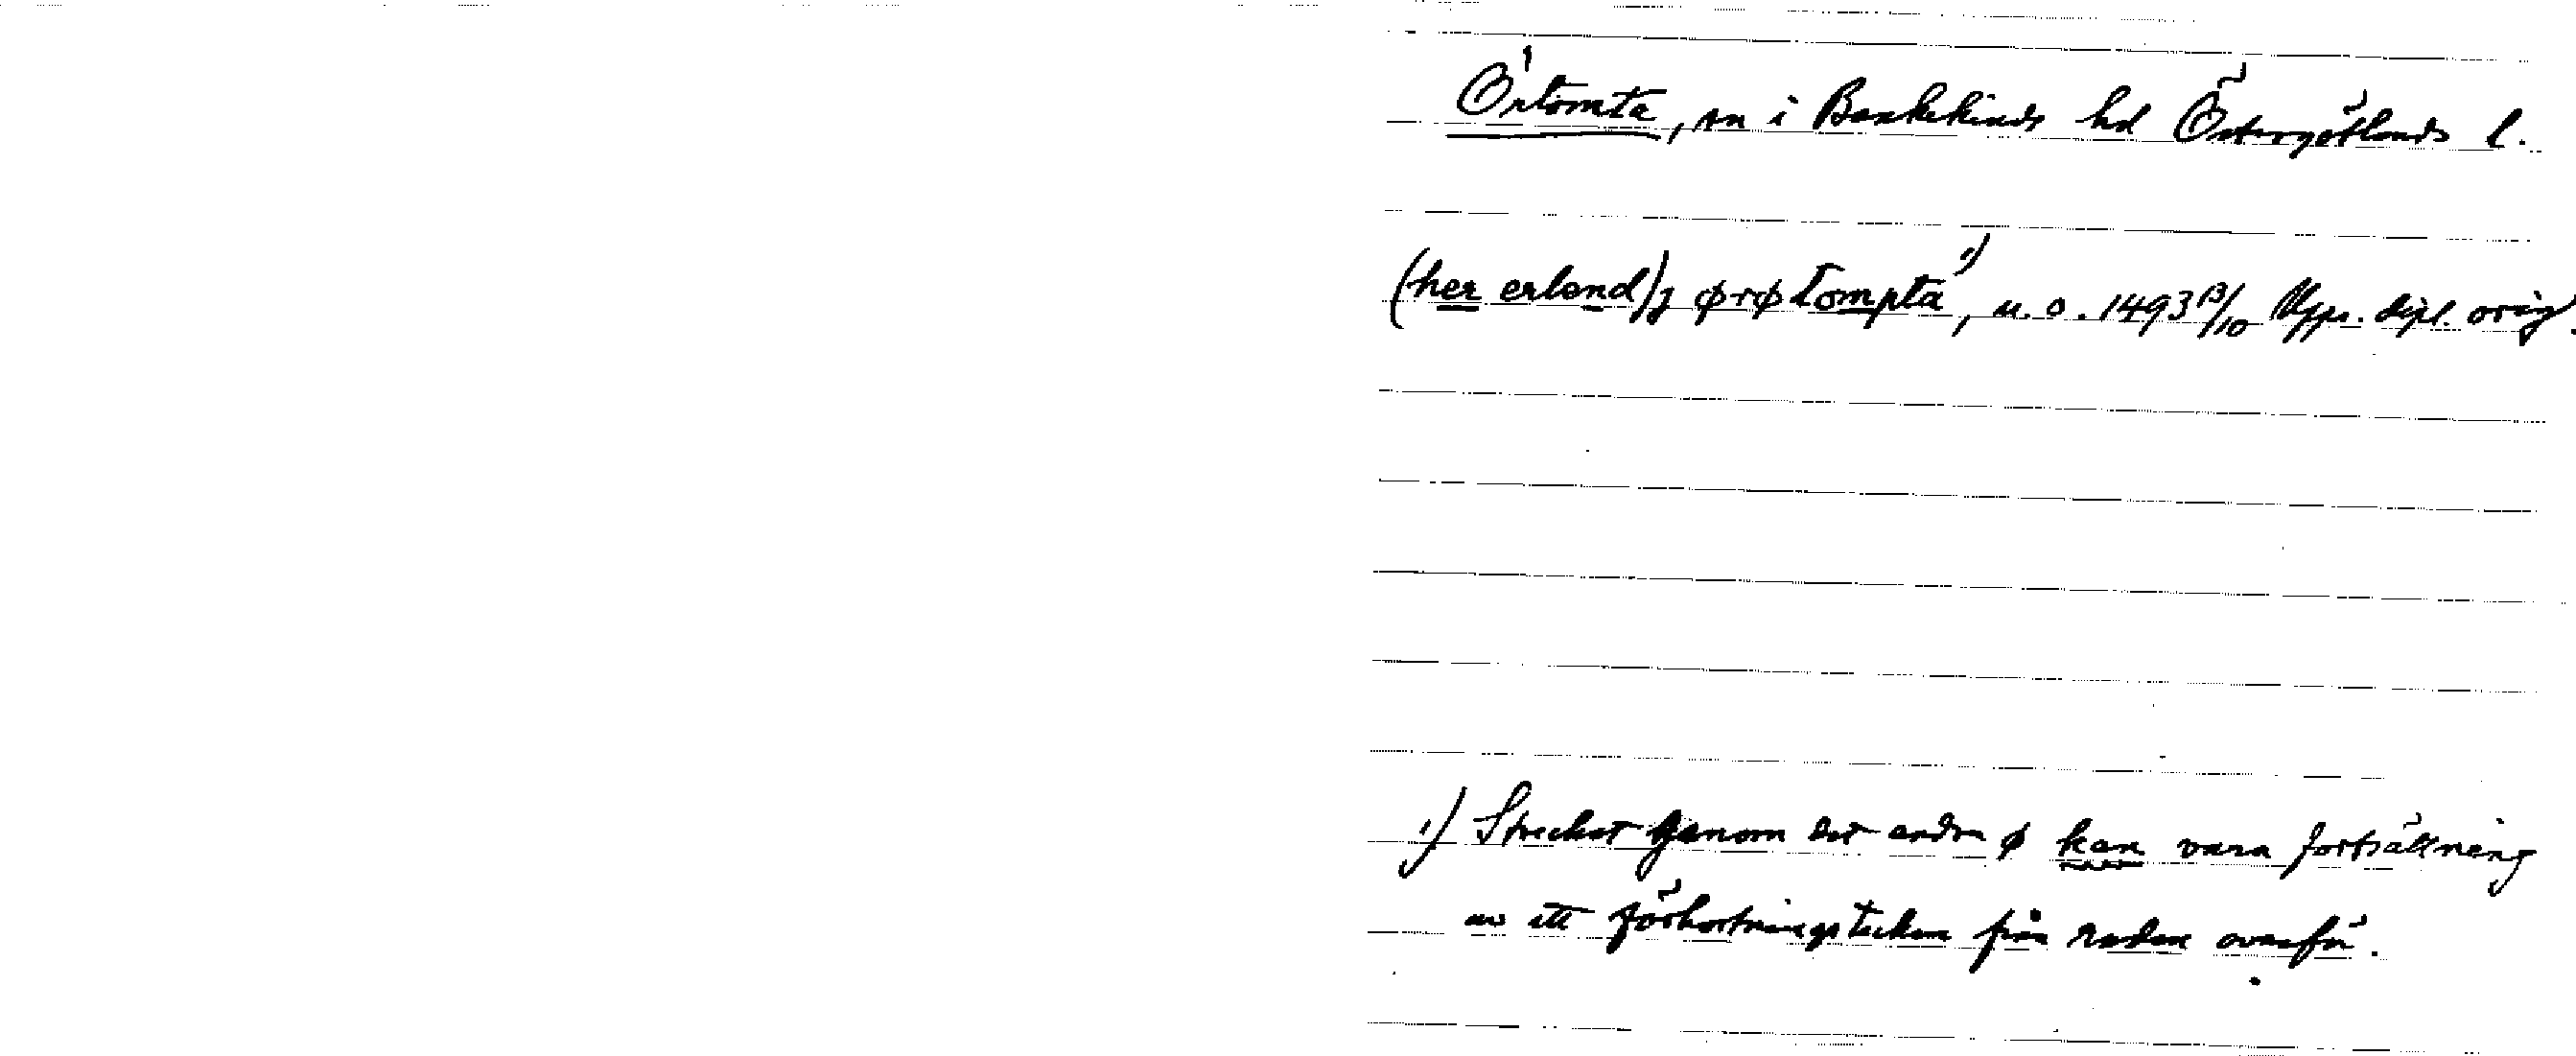 Örtomta, sn i Bankekinds hd Östergötlands l.
(her erland) j ørøtompta ¹⁾, u. o. 1493 13/10 Upps. dipl. orig.
1) Strecket genom det andra ø kan vara fortsättning
av ett förkortningstecken från raden ovanför.